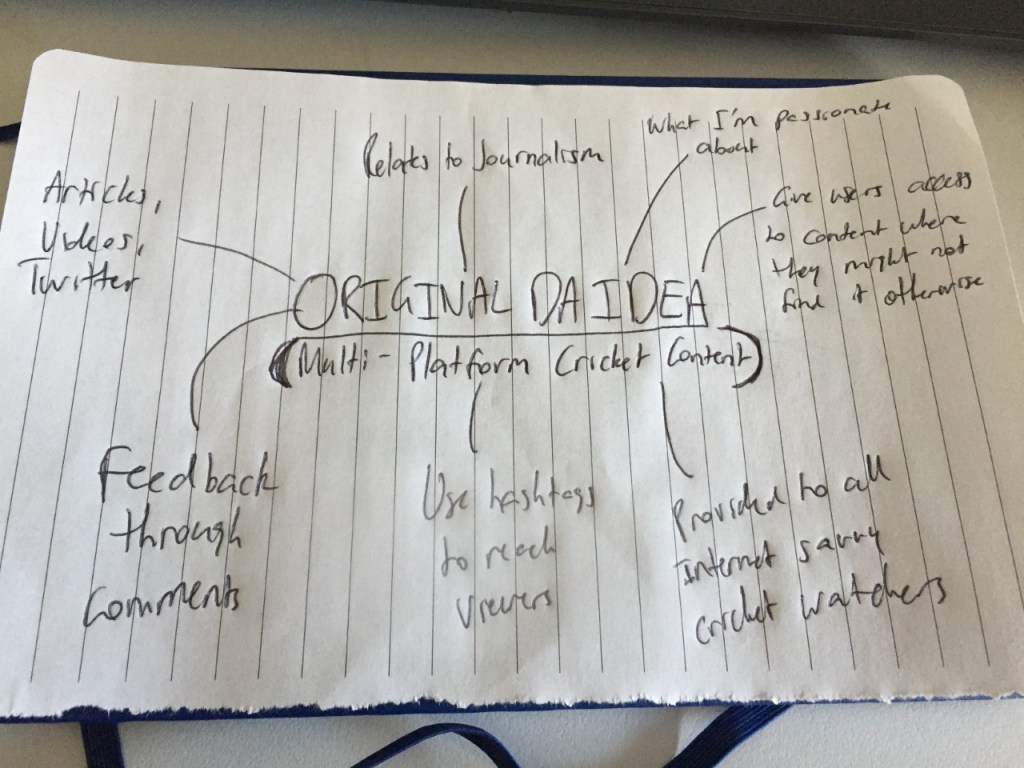 Relates to Journalism
What I'm passionate
about
Articles,
Videos,
Twitter
Give users access
to content where
they might not
find it otherwise
ORIGINAL DA IDEA
(Multi-Platform Cricket Content)
Feedback
through
Comments
Use hashtags
to reach
viewers
Provided to all
internet savvy
cricket watchers